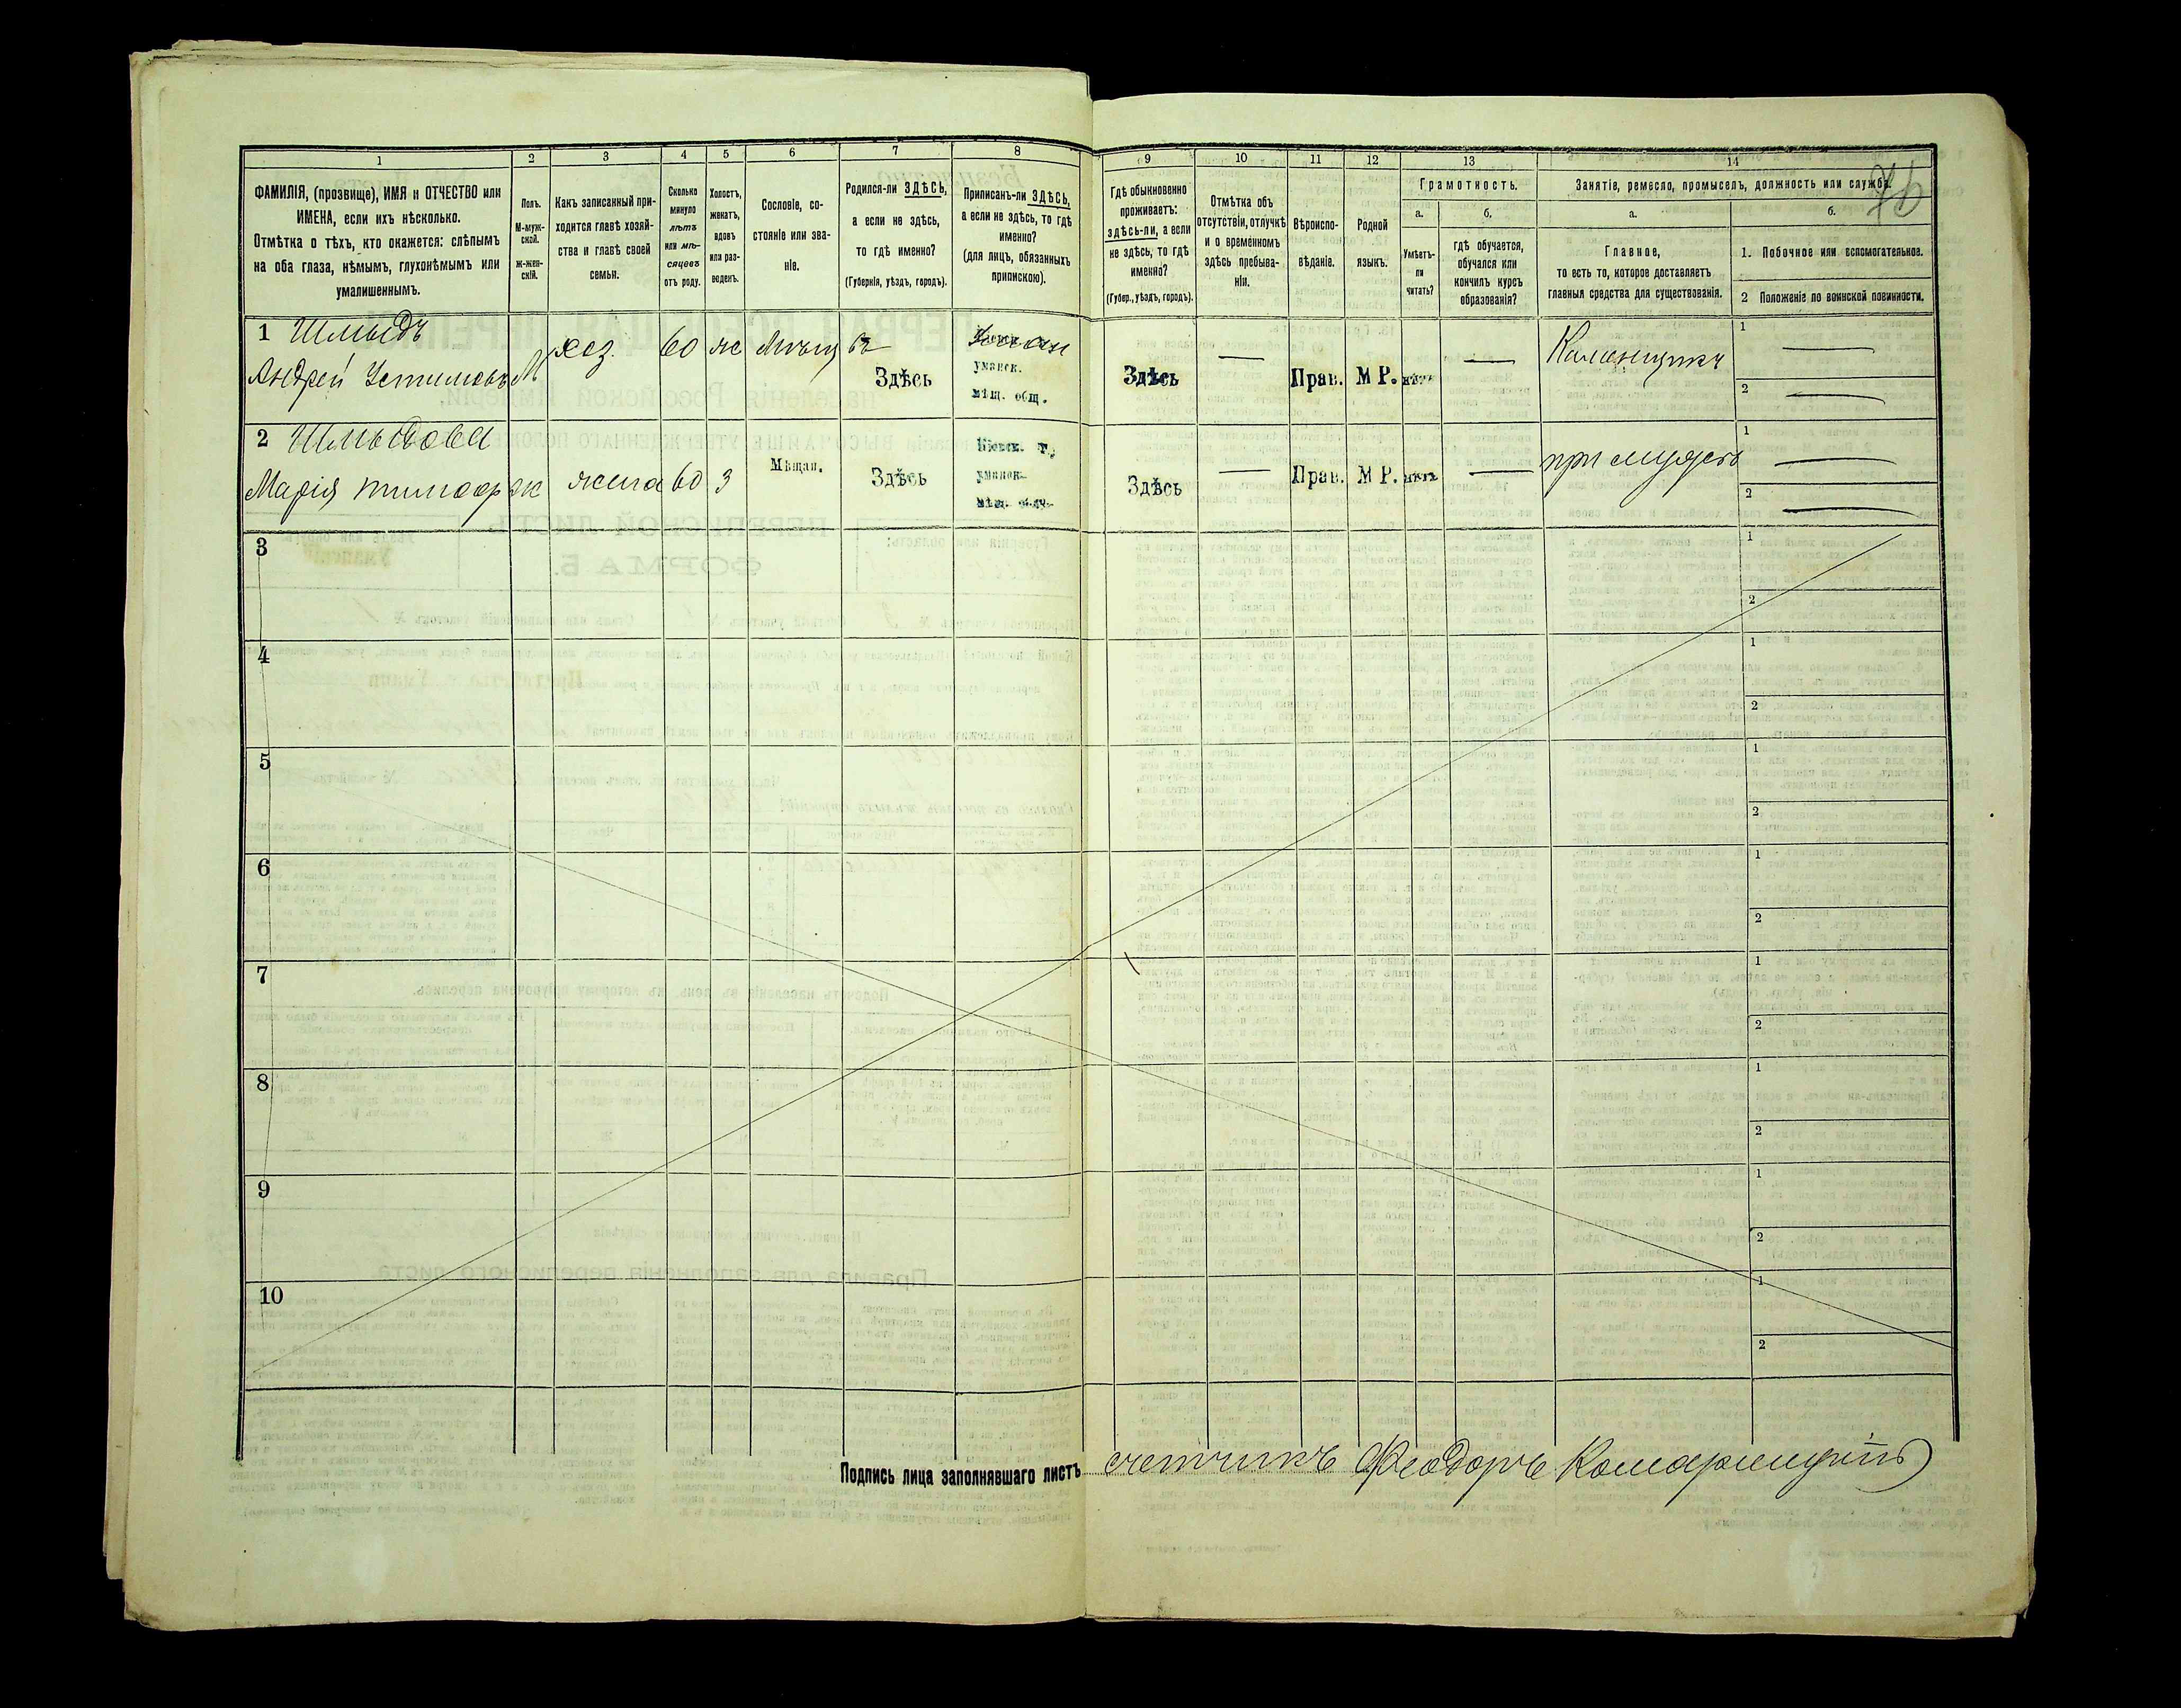 76
1 2 3 4 5 6 7 8 9 10 11 12 13 14
ФАМИЛІЯ, (прозвище), ИМЯ и ОТЧЕСТВО или
ИМЕНА, если ихъ нѣсколько.
Отмѣтка о тѣхъ, кто окажется: слѣпымъ
на оба глаза, нѣмымъ, глухонѣмымъ или
умалишеннымъ.
Полъ.
М-муж-
ской.
ж-жен-
скій.
Какъ записанный при-
ходится главѣ хозяй-
ства и главѣ своей
семьи.
Сколько
минуло
лѣтъ
или мѣ-
сяцевъ
отъ роду.
Холостъ,
женатъ,
вдовъ
или раз-
веденъ.
Сословіе, со-
стояніе или зва-
ніе.
Родился-ли ЗДѢСЬ,
а если не здѣсь,
то гдѣ именно?
(Губернія, уѣздъ, городъ).
Приписанъ-ли ЗДѢСЬ,
а если не здѣсь, то гдѣ
именно?
(для лицъ, обязанныхъ
припискою).
Гдѣ обыкновенно
проживаетъ:
здѣсь-ли, а если
не здѣсь, то гдѣ
именно?
(Губер., уѣздъ, городъ).
Отмѣтка объ
отсутствіи, отлучкѣ
и о временномъ
здѣсь пребыва-
ніи.
Вѣроиспо-
вѣданіе.
Родной
языкъ.
Грамотность.
а.
Умѣетъ-
ли
читать?
б.
гдѣ обучается,
обучался или
кончилъ курсъ
образованія?
Занятіе, ремесло, промыселъ, должность или служба.
а.
Главное,
то есть то, которое доставляетъ
главныя средства для существованія.
б.
1. Побочное или вспомогательное.
2 Положеніе по воинской повинности.
1 Шмыдъ
Андрей Устимовъ М хоз. 60 же Мѣщ Здѣсь
уманск.
мѣщ. общ.
Здѣсь — Прав. М Р. нѣтъ — Каменщикъ
1 —
2 —
2 Шмыдова
Марія тимоф ж жена 60 З Мѣщан. Здѣсь
Кіевск. г.,
уманск.
мѣщ. общ.
Здѣсь — Прав. М Р. нѣтъ — при мужѣ
1 —
2 —
3 1
2
4 1
2
5 1
2
6 1
2
7 1
2
8 1
2
9 1
2
10 1
2
Подпись лица заполнявшаго листъ счетчикъ Феодоръ Комарницкій